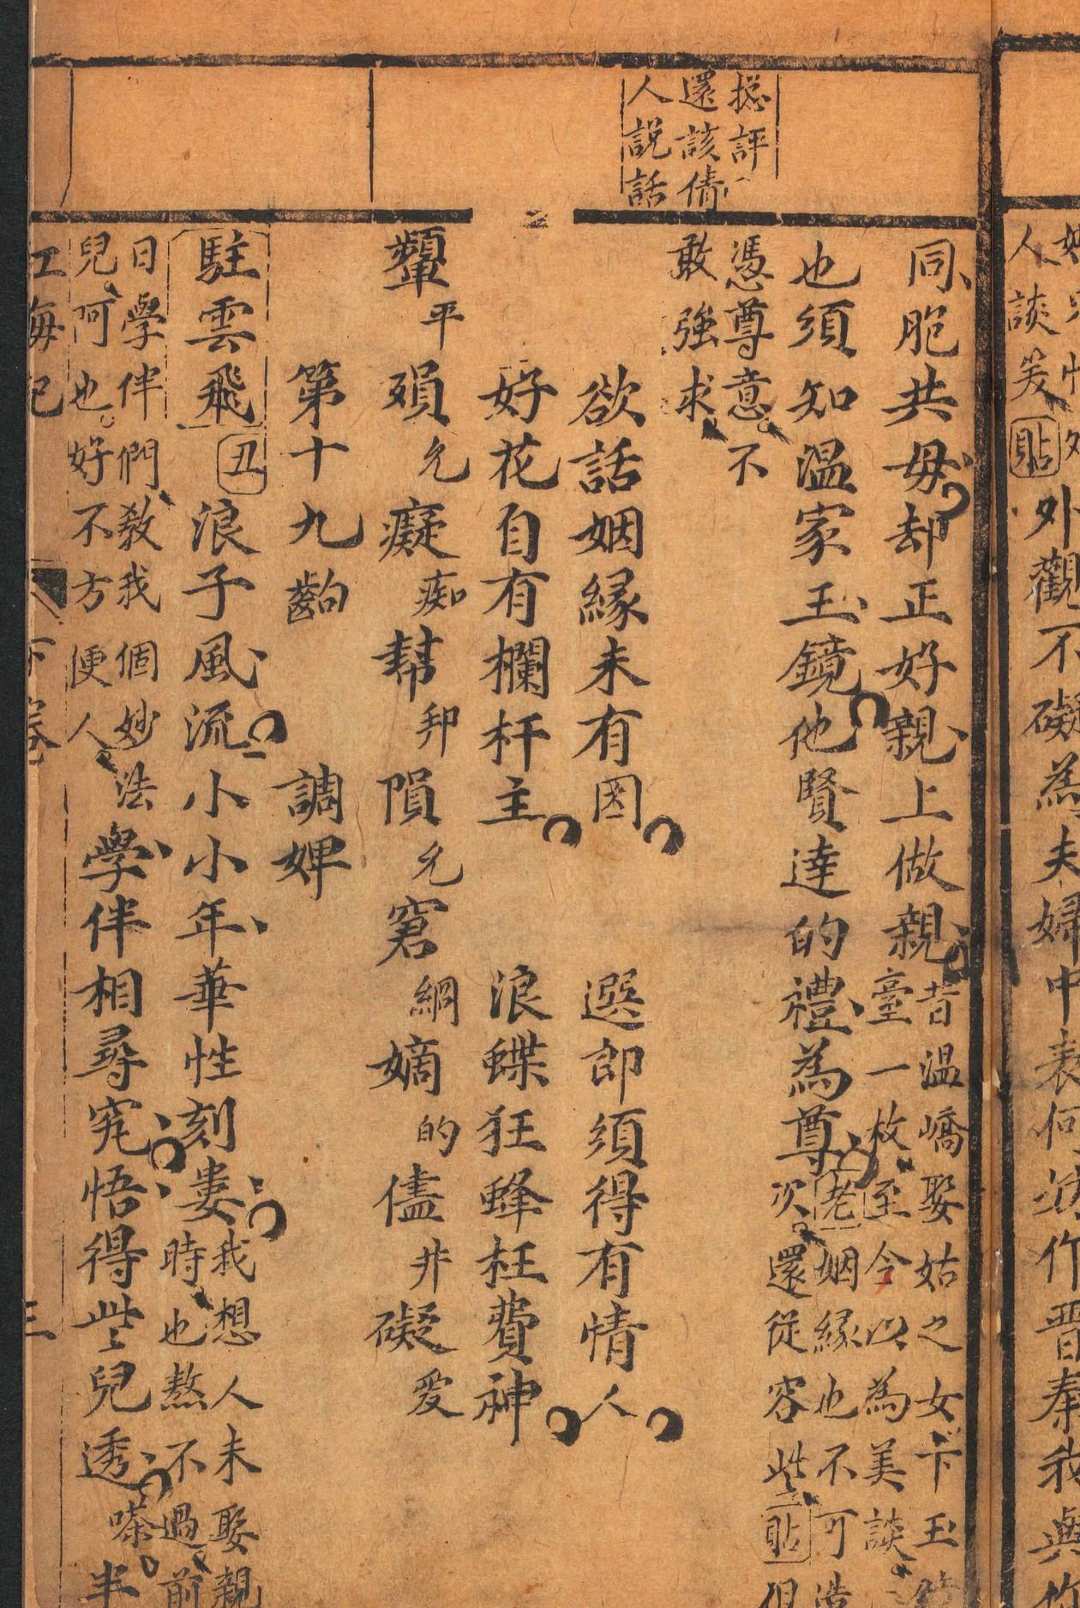 人談笑貼外觀不礙為夫婦中表何妨作晋秦我與你
總評
還該倩
人說話
同胞共毋却正好親上做親昔温嶠娶姑之女下玉
臺一枚至今以為美談
也須知温家玉鏡他賢達的禮為尊老姻緣也不可造
次還從容些貼但
憑尊意不
敢強求
欲話姻緣未有因 選郎須得有情人
好花自有欄杆主 浪蝶狂蜂枉費神
顰平 殞允 癡痴 幫邦 隕允 窘綱 嫡的 儘非 礙爱
第十九齣 調婢
駐雲飛丑浪子風流小小年華性刻婁我想人未娶親
時也熬不過前
日學伴們教我個妙法
兒阿也好不方便人
學伴相尋究悟得些兒透嗏半
江海記 下卷 三